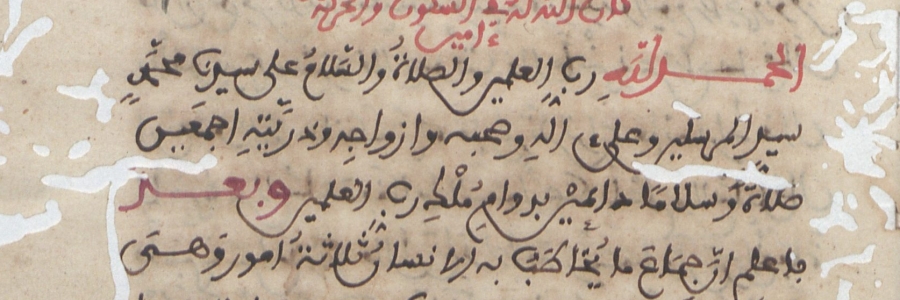 ءامين
الحمد لله رب العلمين والصلاة والسلام على سيدنا محمد
سيد المرسلين وعلى ءاله وصحبه وازواجه وذريته اجمعين
صلاة وسلاما دائمين بدوام ملك رب العلمين وبعد
فاعلم ان جماع ما يخاطب به الانسان ثلاثة امور وهي